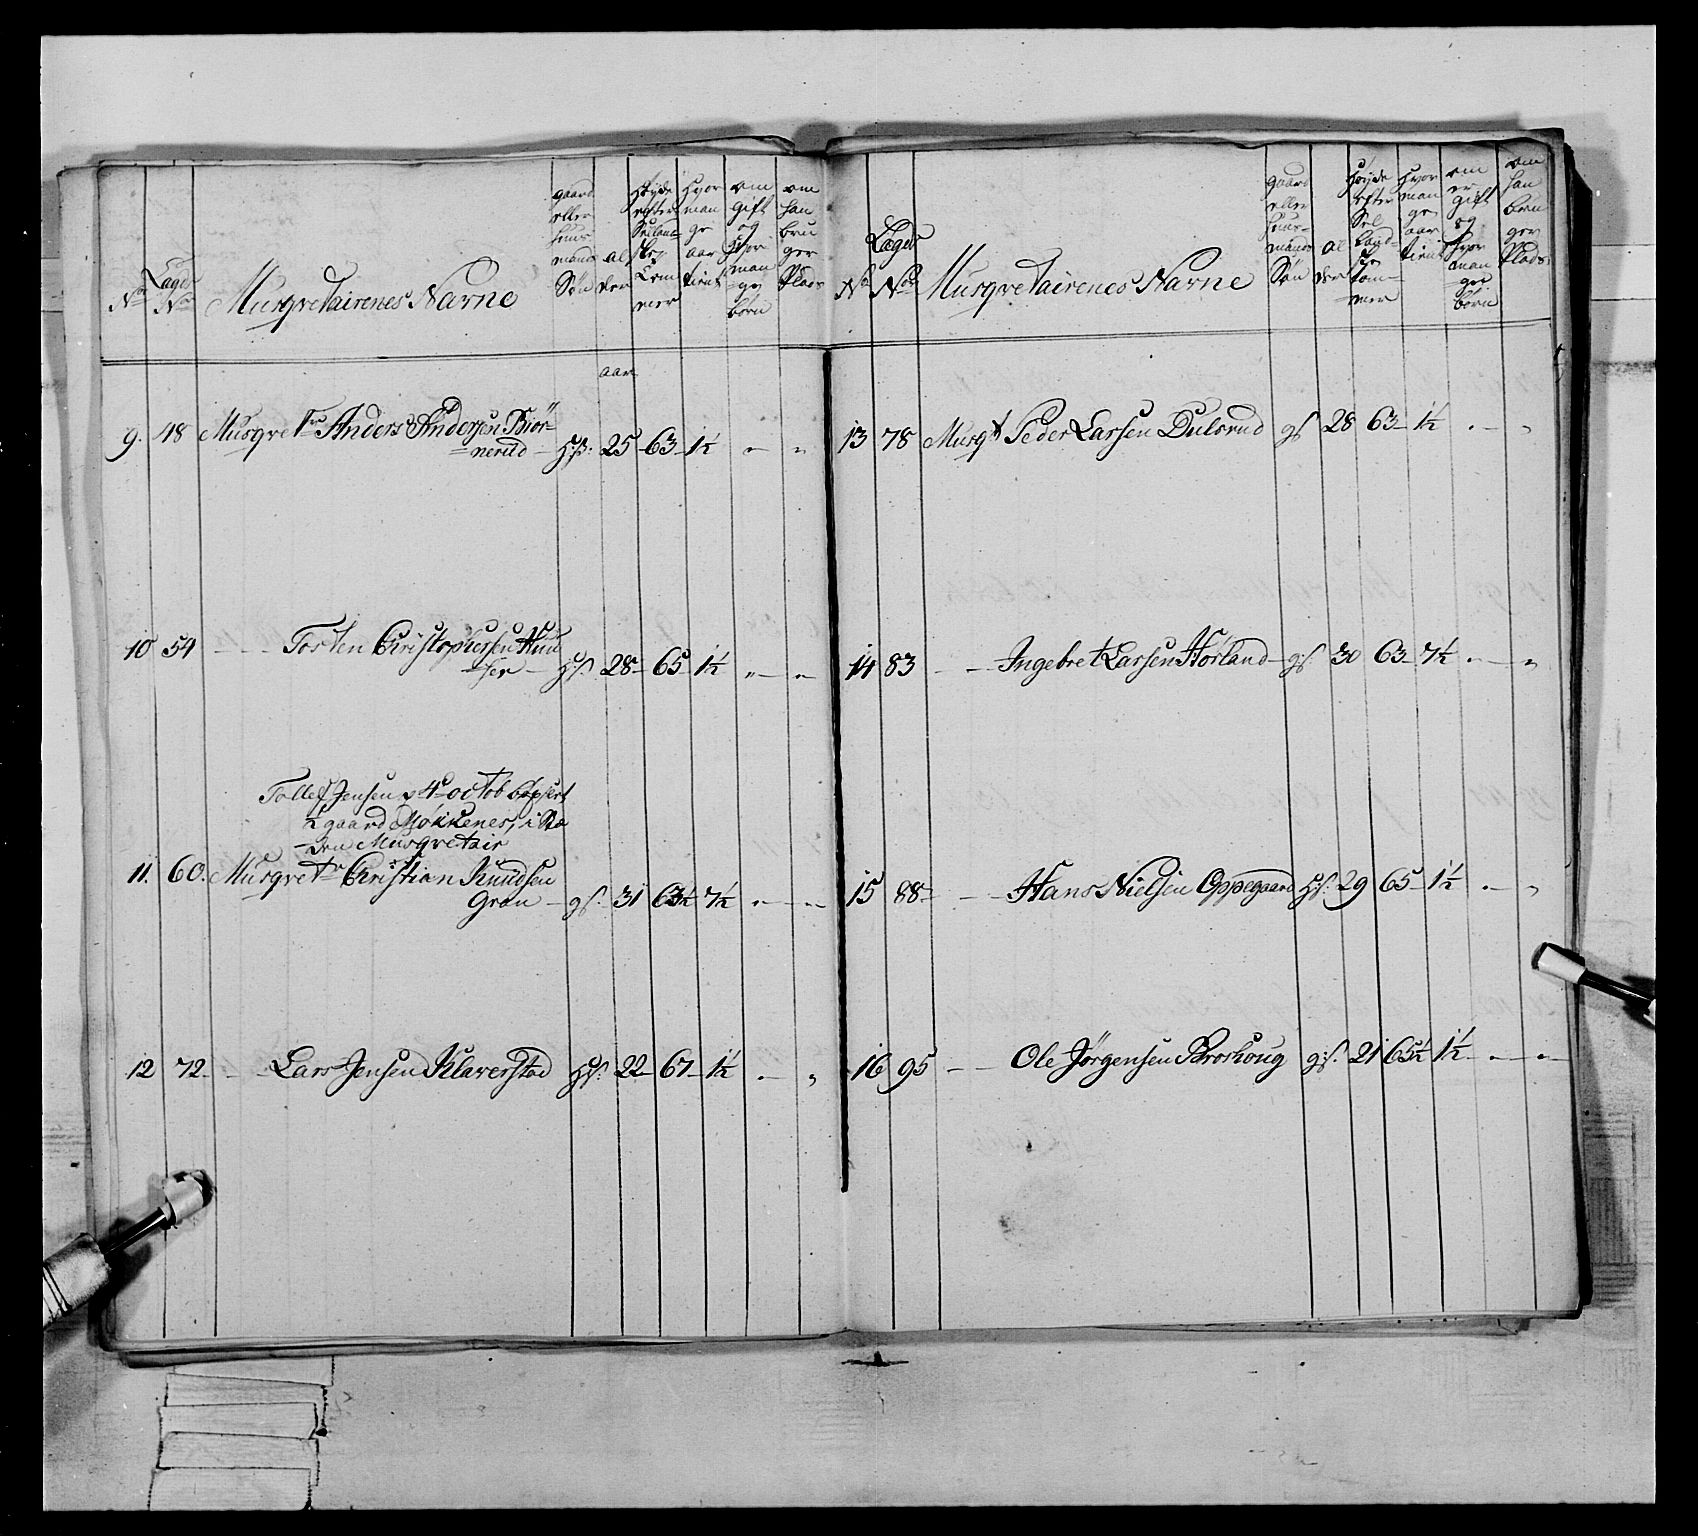 No
Lægds No
Musqvetairenes Navne
gaard eller huus mands Søn
al der
Høyde efter Seelandske Tommer
Hvor mange aar tient
om gift og Hvor mange børn
om han bruger Plads
aar
9. 48 Musqvetr Anders Andersen Biør-
nerud – Hs: 25 – 63 – 1½ „ „
10 54 – – Torsten Christophersen Huu
ser – Hs: 28 – 65 – 1½ „ – „ –
Tollef Jensen 4 octob
gaard Mokkenes, i Stæ
den Musqvetair
11. 60. Musqvetr Christian Knudsen
Gran – gs: 31 63½ 7½ „ – „ –
12 72 – – Lars Jensen Klaverstad Hs: 22 – 67 – 1½ „ – „
No
Lægds No
Musqvetairenes Navne
gaard eller huus-mands Søn
al der
Høyde efter Seelandske tommer
Hvor mange aar tient
om er gift og Hvor mange børn
om han bruger Plads
13 78 Musqt Peder Larsen Dulsrud gs 28 63 – 1½ „ – „
14 83 – – Ingebret Larsen Hørland – gs: 30 63 – 7½ „ – „
15 88 – – Hans Nielsen Oppegaard Hs: 29 65 – 1½ „ – „
16 95 – – Ole Jørgensen Broshoug gs: 21 65½ 1½ – „ – „